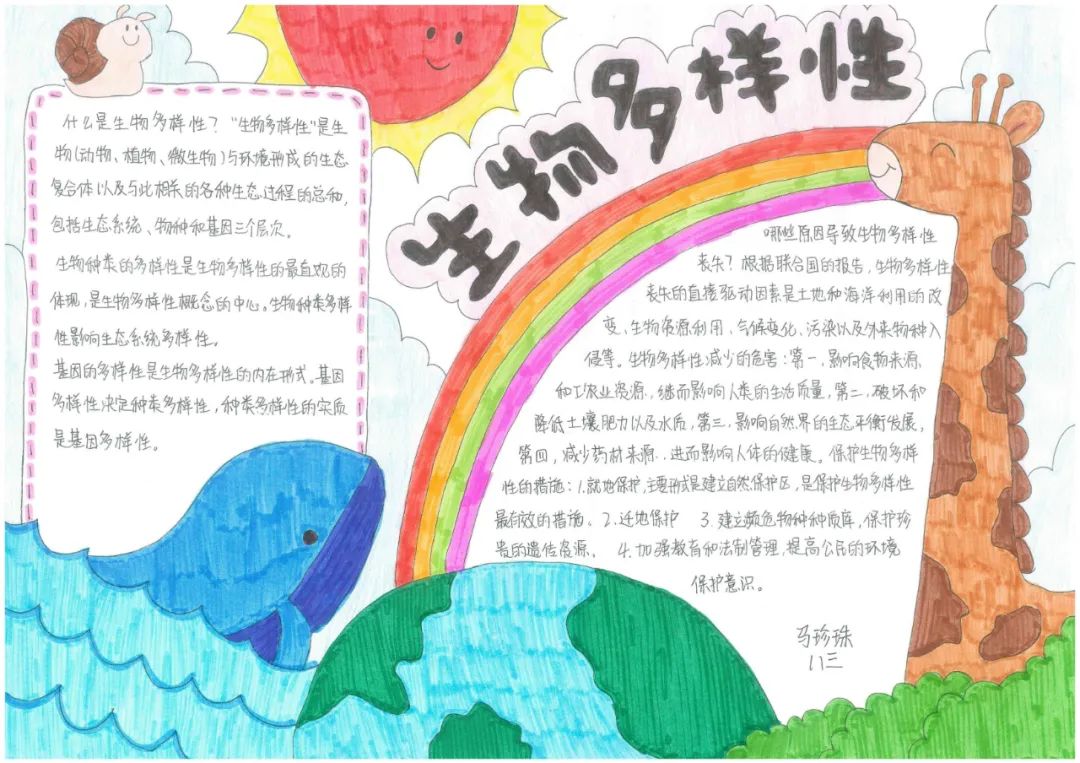 生物多样性
什么是生物多样性？“生物多样性”是生
物(动物、植物、微生物)与环境形成的生态
复合体以及与此相关的各种生态过程的总和,
包括生态系统、物种和基因三个层次。
生物种类的多样性是生物多样性的最直观的
体现,是生物多样性概念的中心。生物种类多样
性影响生态系统多样性。
基因的多样性是生物多样性的内在形式。基因
多样性决定种类多样性,种类多样性的实质
是基因多样性。
哪些原因导致生物多样性
丧失？根据联合国的报告,生物多样性
丧失的直接驱动因素是土地和海洋利用的改
变、生物资源利用、气候变化、污染以及外来物种入
侵等。生物多样性减少的危害:第一,影响食物来源
和工农业资源,继而影响人类的生活质量,第二,破坏和
降低土壤肥力以及水质,第三,影响自然界的生态平衡发展,
第四,减少药材来源..进而影响人体的健康。保护生物多样
性的措施:1.就地保护,主要形式是建立自然保护区,是保护生物多样性
最有效的措施。2.迁地保护 3.建立频危物种种质库,保护珍
贵的遗传资源。 4.加强教育和法制管理,提高公民的环境
保护意识。
马珍珠
八三